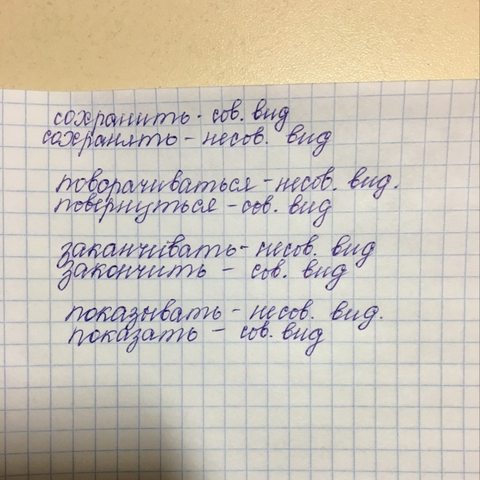 сохранить - сов. вид
сохранять - несов. вид
поворачиваться - несов. вид.
повернуться - сов. вид
заканчивать - несов. вид
закончить - сов. вид
показывать - несов. вид.
показать - сов. вид